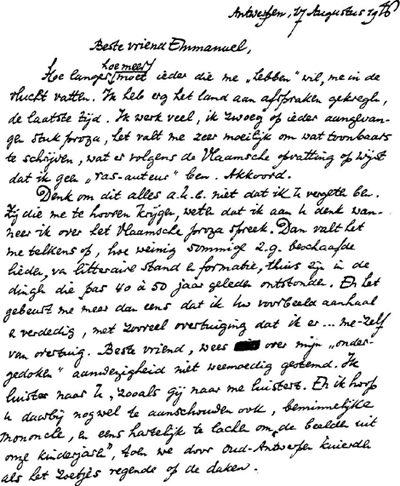 Antwerpen, 17 Augustus 1976
Beste vriend Emmanuel,
hoe meer
Hoe langer moet ieder die me "hebben" wil, me in de
vlucht vatten. Ik heb erg het land aan afspraken gekregen,
de laatste tijd. Ik werk veel, ik zwoeg op ieder aangevan-
gen stuk proza, het valt me zeer moeilijk om wat toonbaars
te schrijven, wat er volgens de Vlaamsche opvatting op wijst
dat ik geen "ras-auteur" ben. Akkoord.
Denk om dit alles a.u.b. niet dat ik U vergeten ben.
Zij die me te hooren krijgen, weten dat ik aan U denk wan-
neer ik over het Vlaamsche proza spreek. Dan valt het
me telkens op, hoe weinig sommige z.g. beschaafde
lieden, van litteraire stand & formatie, thuis zijn in de
dingen die pas 40 à 50 jaar geleden ontstonden. En het
gebeurt me meer dan eens dat ik Uw voorbeeld aanhaal
& verdedig, met zooveel overtuiging dat ik er ... me-zelf
van overtuig. Beste vriend, wees over mijn "onder-
gedoken" aanwezigheid niet weemoedig gestemd. Ik
luister naar U, zooals gij naar me luistert. En ik hoop
U daarbij nog wel te aanschouwen ook, beminnelijke
mononcle, en eens hartelijk te lachen om "de beelden uit
onze kinderjaren", toen we door Oud-Antwerpen kuierden
als het zoetjes regende op de daken.